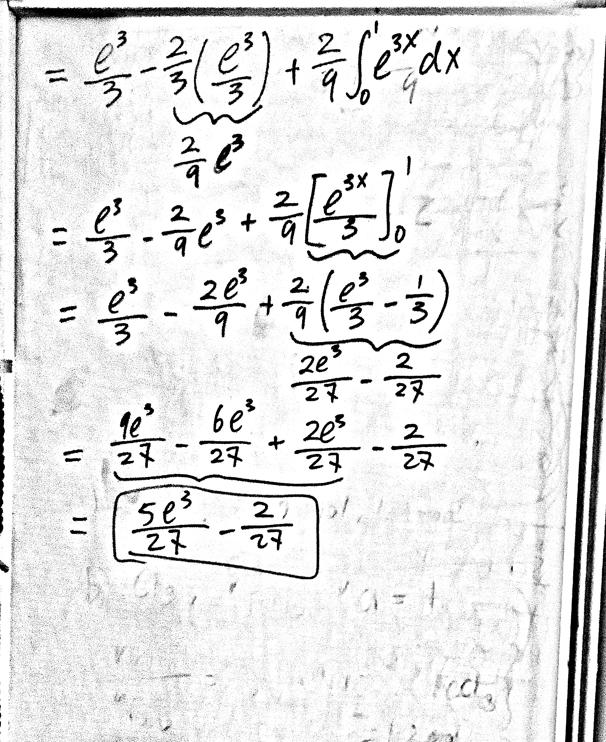 = e³/3 - 2/3 (e³/3) + 2/9 ∫₀¹ e³ˣ dx
2/9 e³
= e³/3 - 2/9 e³ + 2/9 [e³ˣ/3]₀¹
= e³/3 - 2e³/9 + 2/9 (e³/3 - 1/3)
2e³/27 - 2/27
= 9e³/27 - 6e³/27 + 2e³/27 - 2/27
= 5e³/27 - 2/27